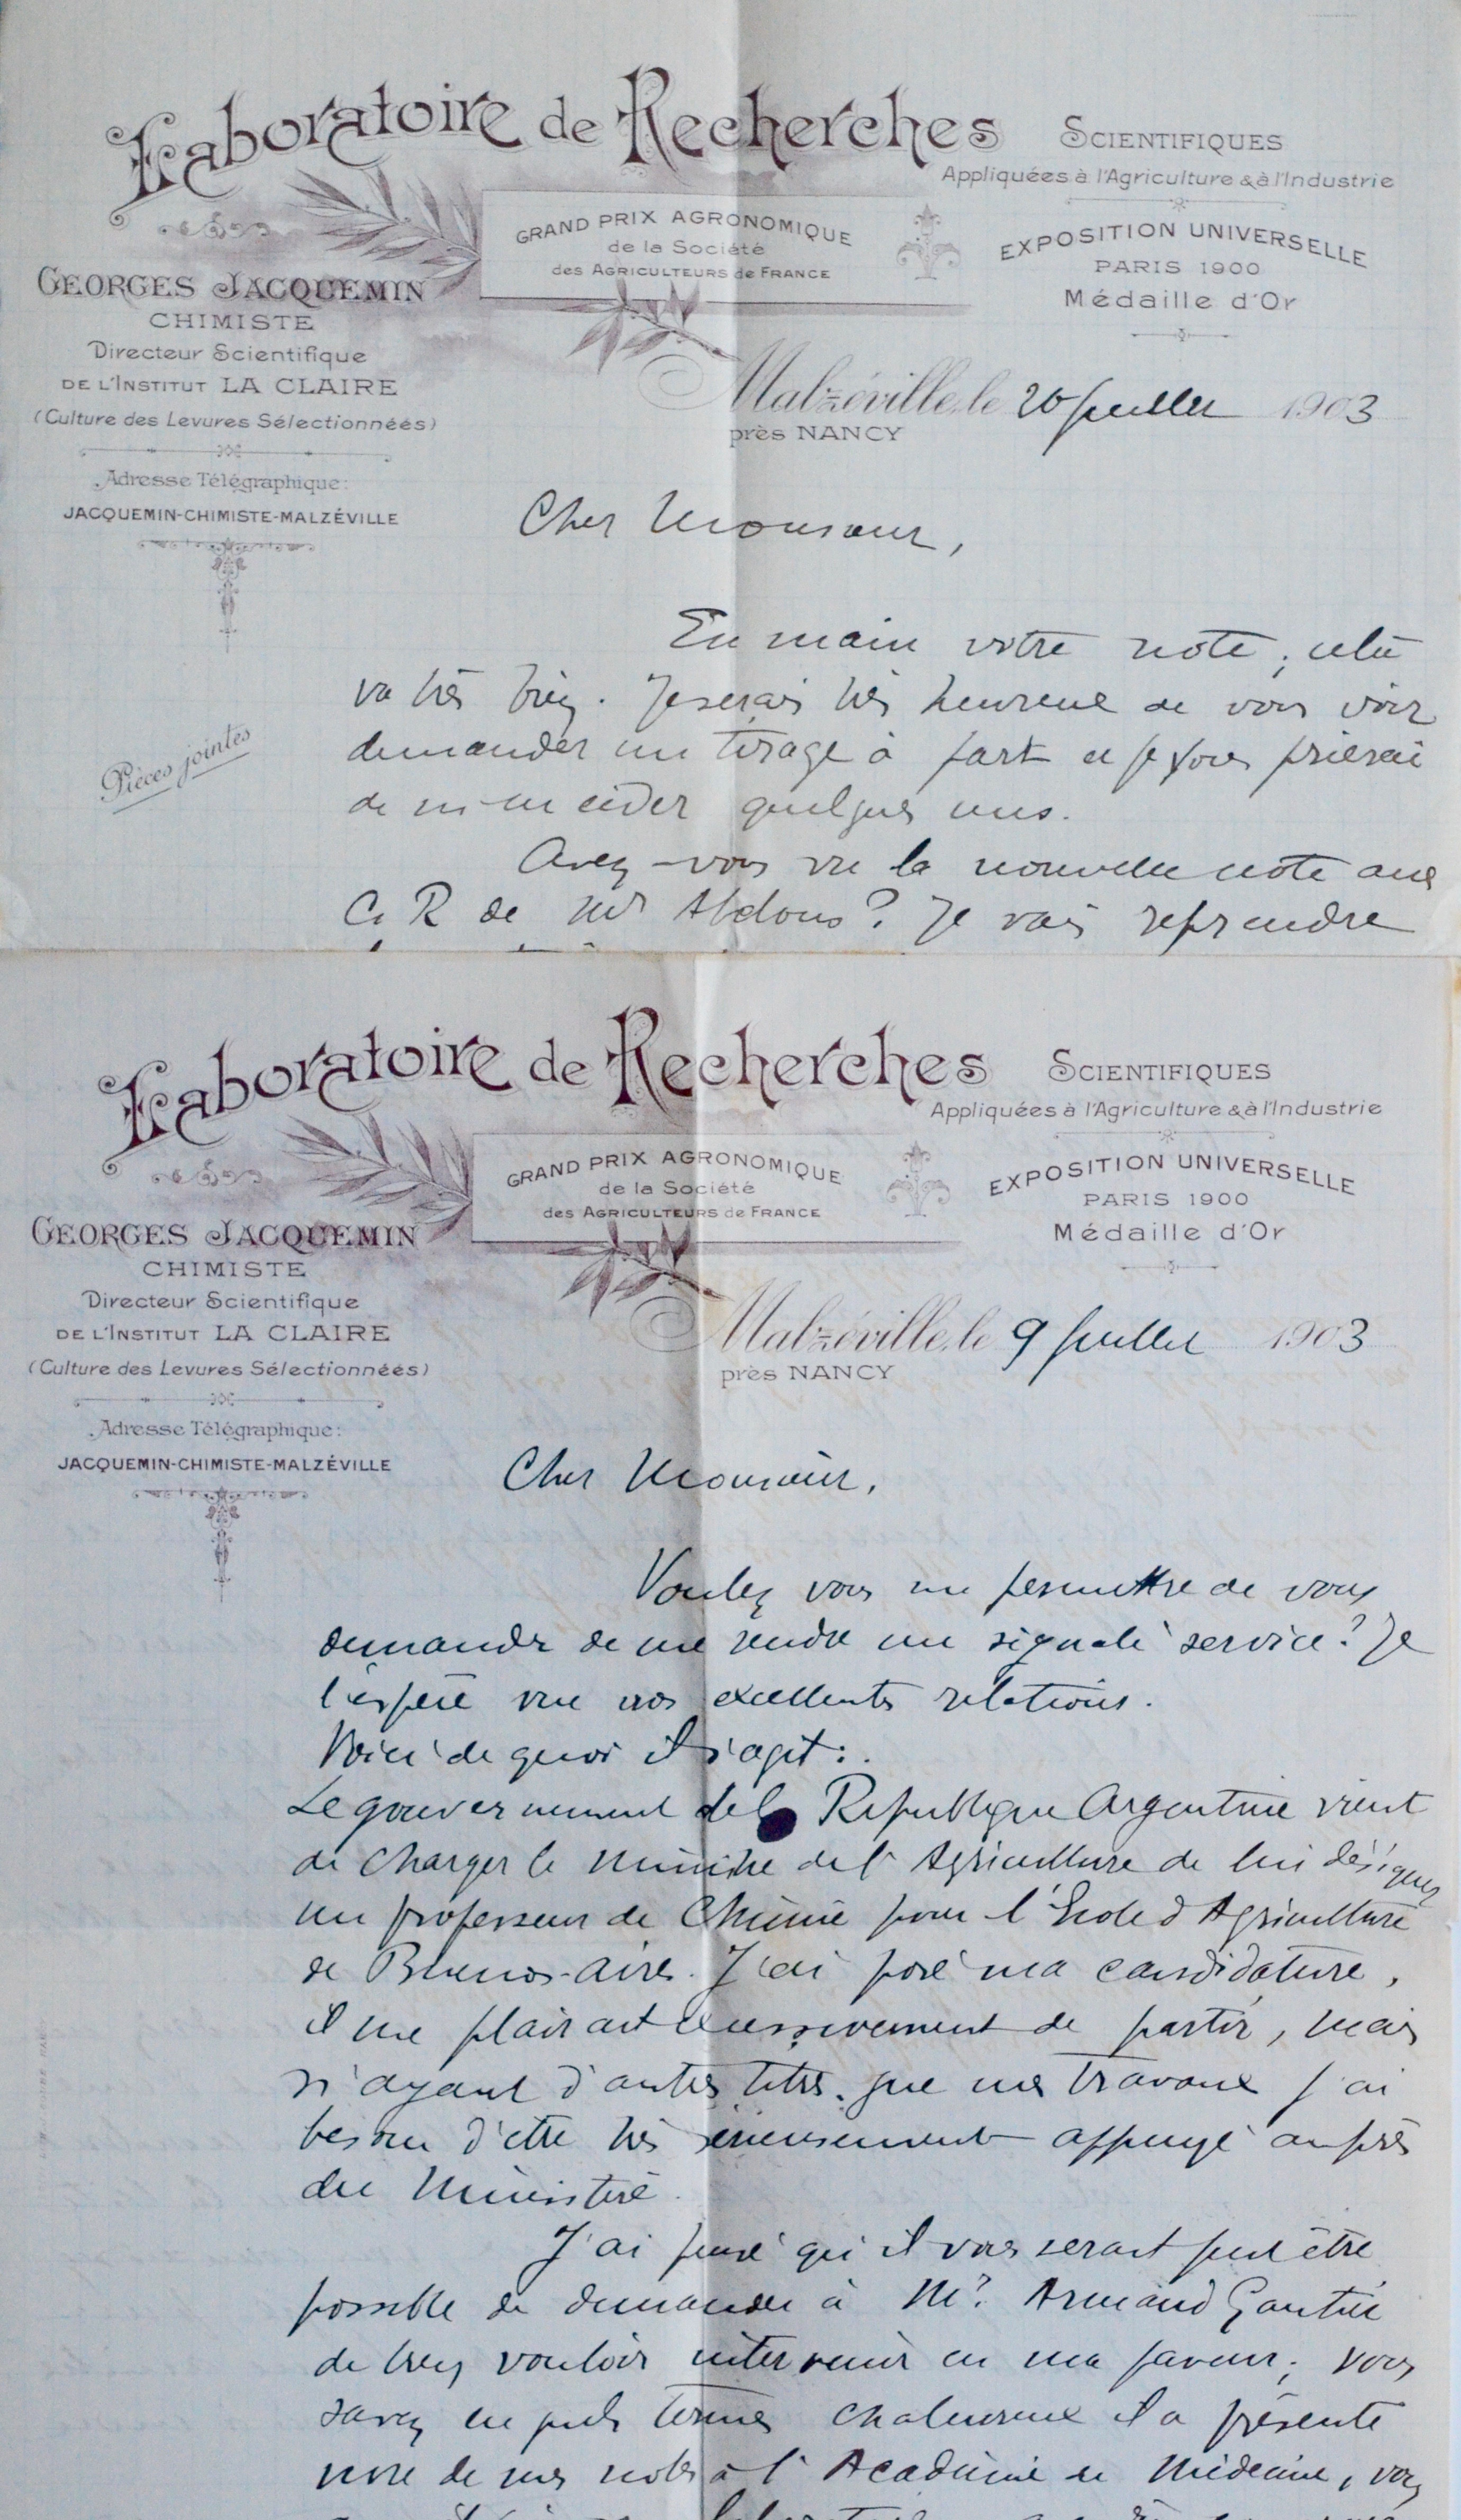 Laboratoire de Recherches SCIENTIFIQUES
Appliquées à l'Agriculture & à l'Industrie
GRAND PRIX AGRONOMIQUE
de la Société
des AGRICULTEURS de FRANCE
EXPOSITION UNIVERSELLE
PARIS 1900
Médaille d'Or
GEORGES JACQUEMIN
CHIMISTE
Directeur Scientifique
DE L'INSTITUT LA CLAIRE
(Culture des Levures Sélectionnéés)
Adresse Télégraphique:
JACQUEMIN-CHIMISTE-MALZÉVILLE
Malzéville, le 20 Juillet 1903
près NANCY
Pièces jointes
Cher Monsieur,
En main votre note, cela
va très bien. Je serais très heureux de vous voir
demander un tirage à part et je vous prierai
de m'en céder quelques uns.
Avez-vous vu la nouvelle note aux
C. R de Mr ? Je vais reprendre
Laboratoire de Recherches SCIENTIFIQUES
Appliquées à l'Agriculture & à l'Industrie
GRAND PRIX AGRONOMIQUE
de la Société
des AGRICULTEURS de FRANCE
EXPOSITION UNIVERSELLE
PARIS 1900
Médaille d'Or
GEORGES JACQUEMIN
CHIMISTE
Directeur Scientifique
DE L'INSTITUT LA CLAIRE
(Culture des Levures Sélectionnéés)
Adresse Télégraphique:
JACQUEMIN-CHIMISTE-MALZÉVILLE
Malzéville, le 9 Juillet 1903
près NANCY
Cher Monsieur,
Voulez vous me permettre de vous
demander de me rendre un signalé service? Je
l'espère vu nos excellentes relations.
Voici de quoi il s'agit:
Le gouvernement de la République Argentine vient
de charger le Ministre de l'Agriculture de lui désigner
un professeur de Chimie pour l'Ecole d'Agriculture
de Buenos-aires. J'ai posé ma candidature,
il me plairait excessivement de partir, mais
n'ayant d'autres titres que mes travaux j'ai
besoin d'etre très sérieusement appuyé auprès
du Ministère.
J'ai pensé qu'il vous serait peut être
possible de demander à Mr. Armand Gautier
de bien vouloir intervenir en ma faveur; vous
savez en quels termes chaleureux il a présenté
une de mes notes à l'Académie de Médecine, vous